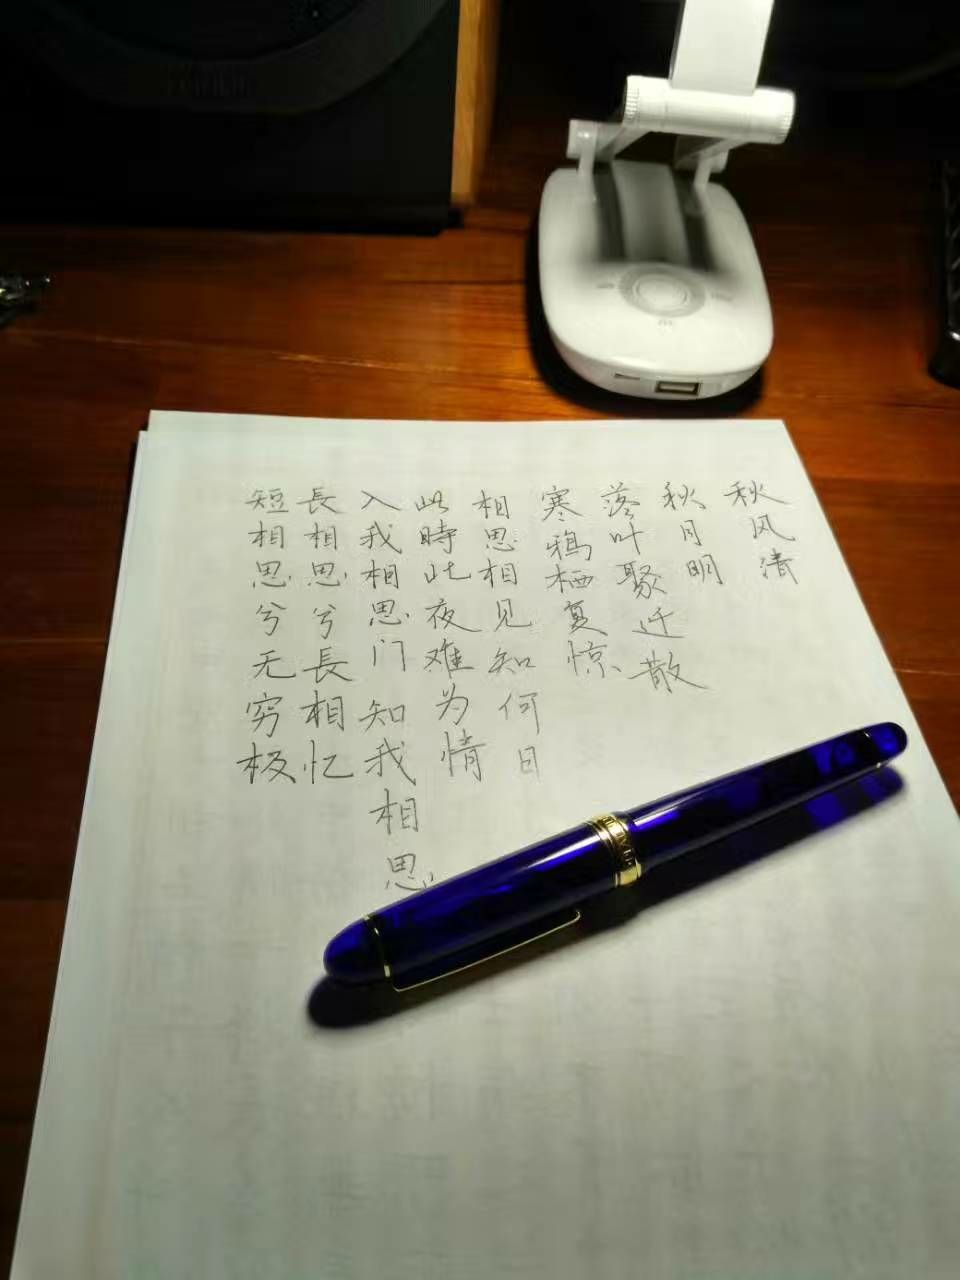 秋风清
秋月明
落叶聚还散
寒鸦栖复惊
相思相见知何日
此時此夜难为情
入我相思门知我相思
長相思兮長相忆
短相思兮无穷极